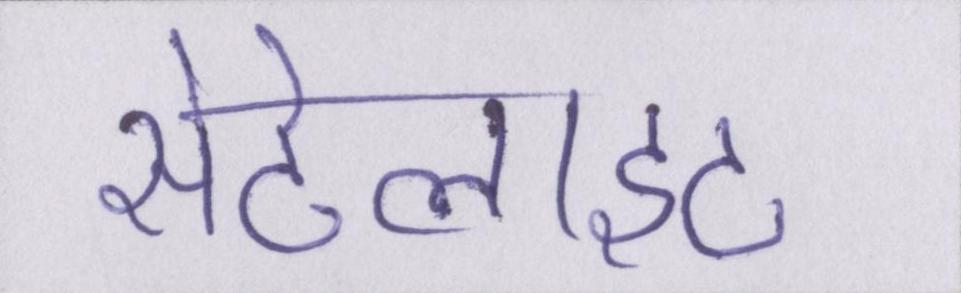 सेटेलाइट